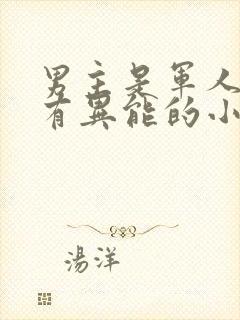 男主是軍人
有異能的小
湯洋